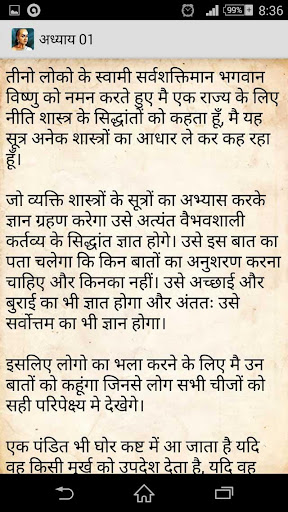 99% 8:36
अध्याय 01
तीनो लोको के स्वामी सर्वशक्तिमान भगवान
विष्णु को नमन करते हुए मै एक राज्य के लिए
नीति शास्त्र के सिद्धांतों को कहता हूँ, मै यह
सूत्र अनेक शास्त्रों का आधार ले कर कह रहा
हूँ।
जो व्यक्ति शास्त्रों के सूत्रों का अभ्यास करके
ज्ञान ग्रहण करेगा उसे अत्यंत वैभवशाली
कर्तव्य के सिद्धांत ज्ञात होगे। उसे इस बात का
पता चलेगा कि किन बातों का अनुशरण करना
चाहिए और किनका नहीं। उसे अच्छाई और
बुराई का भी ज्ञात होगा और अंततः उसे
सर्वोत्तम का भी ज्ञान होगा।
इसलिए लोगो का भला करने के लिए मै उन
बातों को कहूंगा जिनसे लोग सभी चीजों को
सही परिपेक्ष्य मे देखेगे।
एक पंडित भी घोर कष्ट में आ जाता है यदि
वह किसी मुर्ख को उपदेश देता है, यदि वह